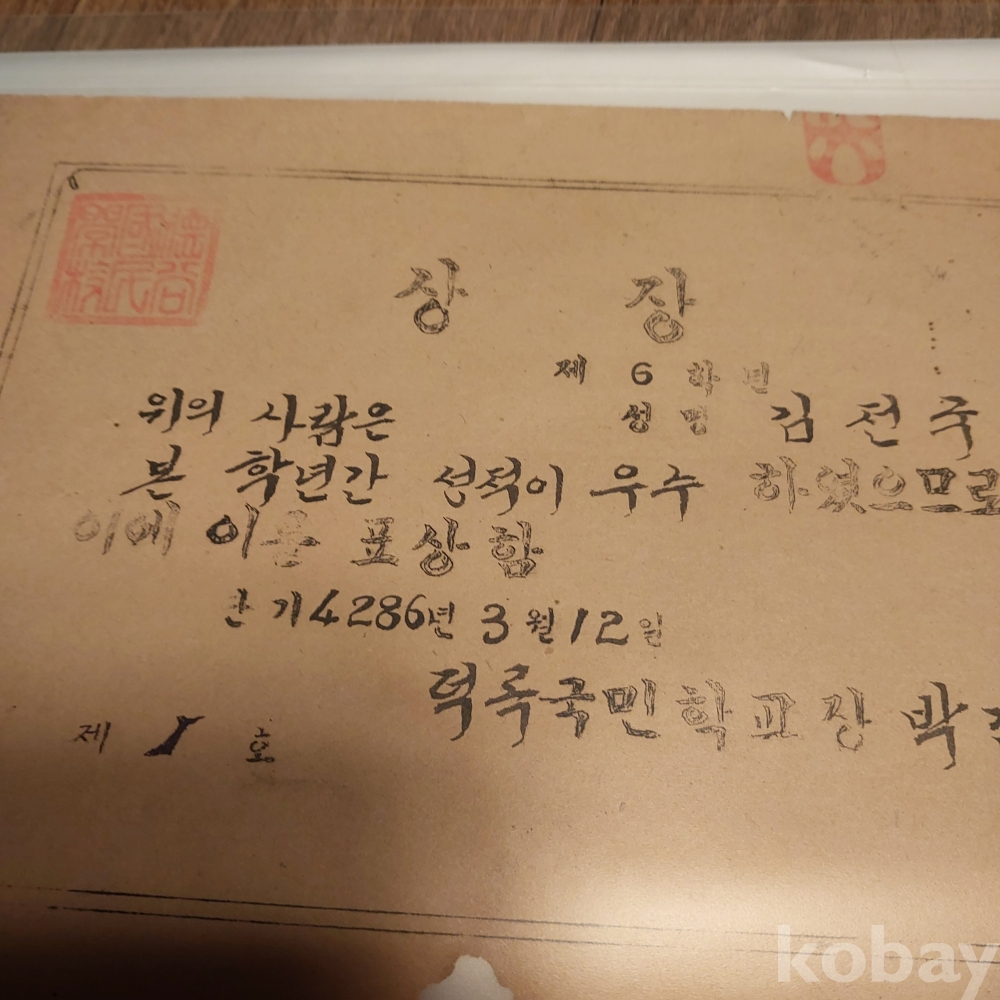 상 장
제 6 학년
성명 김전국
위의 사람은
본 학년간 성적이 우수 하였으므로
이에 이를 표상함
단기 4286년 3월 12일
덕록국민학교장 박
제 1 호
kobay